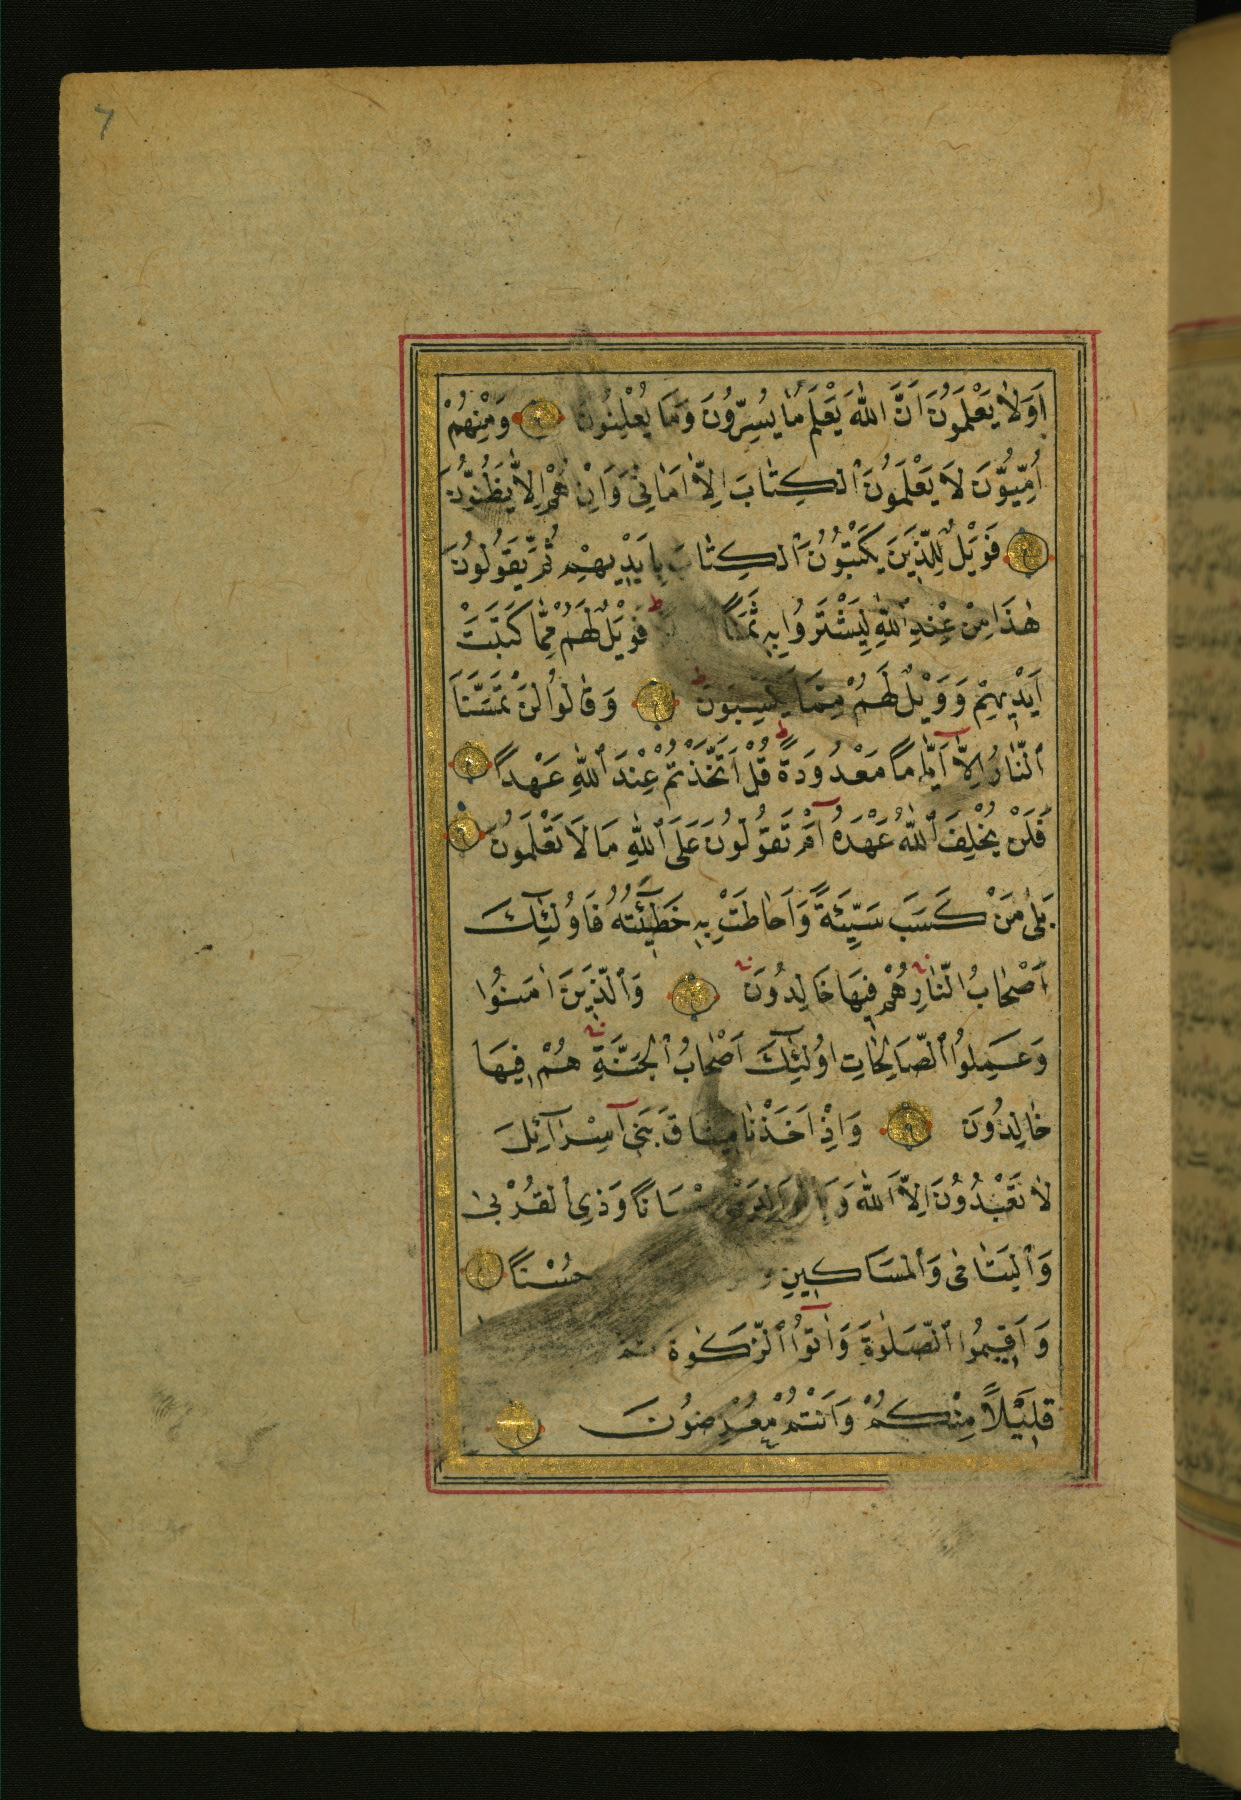 7
اَوَلَا يَعْلَمُونَ اَنَّ اللّٰهَ يَعْلَمُ مَا يُسِرُّونَ وَمَا يُعْلِنُونَ وَمِنْهُمْ
اُمِّيُّونَ لَا يَعْلَمُونَ الْكِتَابَ اِلَّا اَمَانِيَّ وَاِنْ هُمْ اِلَّا يَظُنُّونَ
فَوَيْلٌ لِلَّذِينَ يَكْتُبُونَ الْكِتَابَ بِاَيْدِيهِمْ ثُمَّ يَقُولُونَ
هٰذَا مِنْ عِنْدِ اللّٰهِ لِيَشْتَرُوا بِهِ ثَمَنًا فَوَيْلٌ لَهُمْ مِمَّا كَتَبَتْ
اَيْدِيهِمْ وَوَيْلٌ لَهُمْ مِمَّا يَكْسِبُونَ وَقَالُوا لَنْ تَمَسَّنَا
النَّارُ اِلَّا اَيَّامًا مَعْدُودَةً قُلْ اَتَّخَذْتُمْ عِنْدَ اللّٰهِ عَهْدًا
فَلَنْ يُخْلِفَ اللّٰهُ عَهْدَهُ اَمْ تَقُولُونَ عَلَى اللّٰهِ مَا لَا تَعْلَمُونَ
بَلٰى مَنْ كَسَبَ سَيِّئَةً وَاَحَاطَتْ بِهِ خَطِيئَتُهُ فَاُولٰئِكَ
اَصْحَابُ النَّارِ هُمْ فِيهَا خَالِدُونَ وَالَّذِينَ اٰمَنُوا
وَعَمِلُوا الصَّالِحَاتِ اُولٰئِكَ اَصْحَابُ الْجَنَّةِ هُمْ فِيهَا
خَالِدُونَ وَاِذْ اَخَذْنَا مِيثَاقَ بَنِي اِسْرَائِلَ
لَا تَعْبُدُونَ اِلَّا اللّٰهَ وَبِالْوَالِدَيْنِ اِحْسَانًا وَذِي الْقُرْبٰى
وَالْيَتَامٰى وَالْمَسَاكِينِ حُسْنًا
وَاَقِيمُوا الصَّلٰوةَ وَاٰتُوا الزَّكٰوةَ
قَلِيلًا مِنْكُمْ وَاَنْتُمْ مُعْرِضُونَ